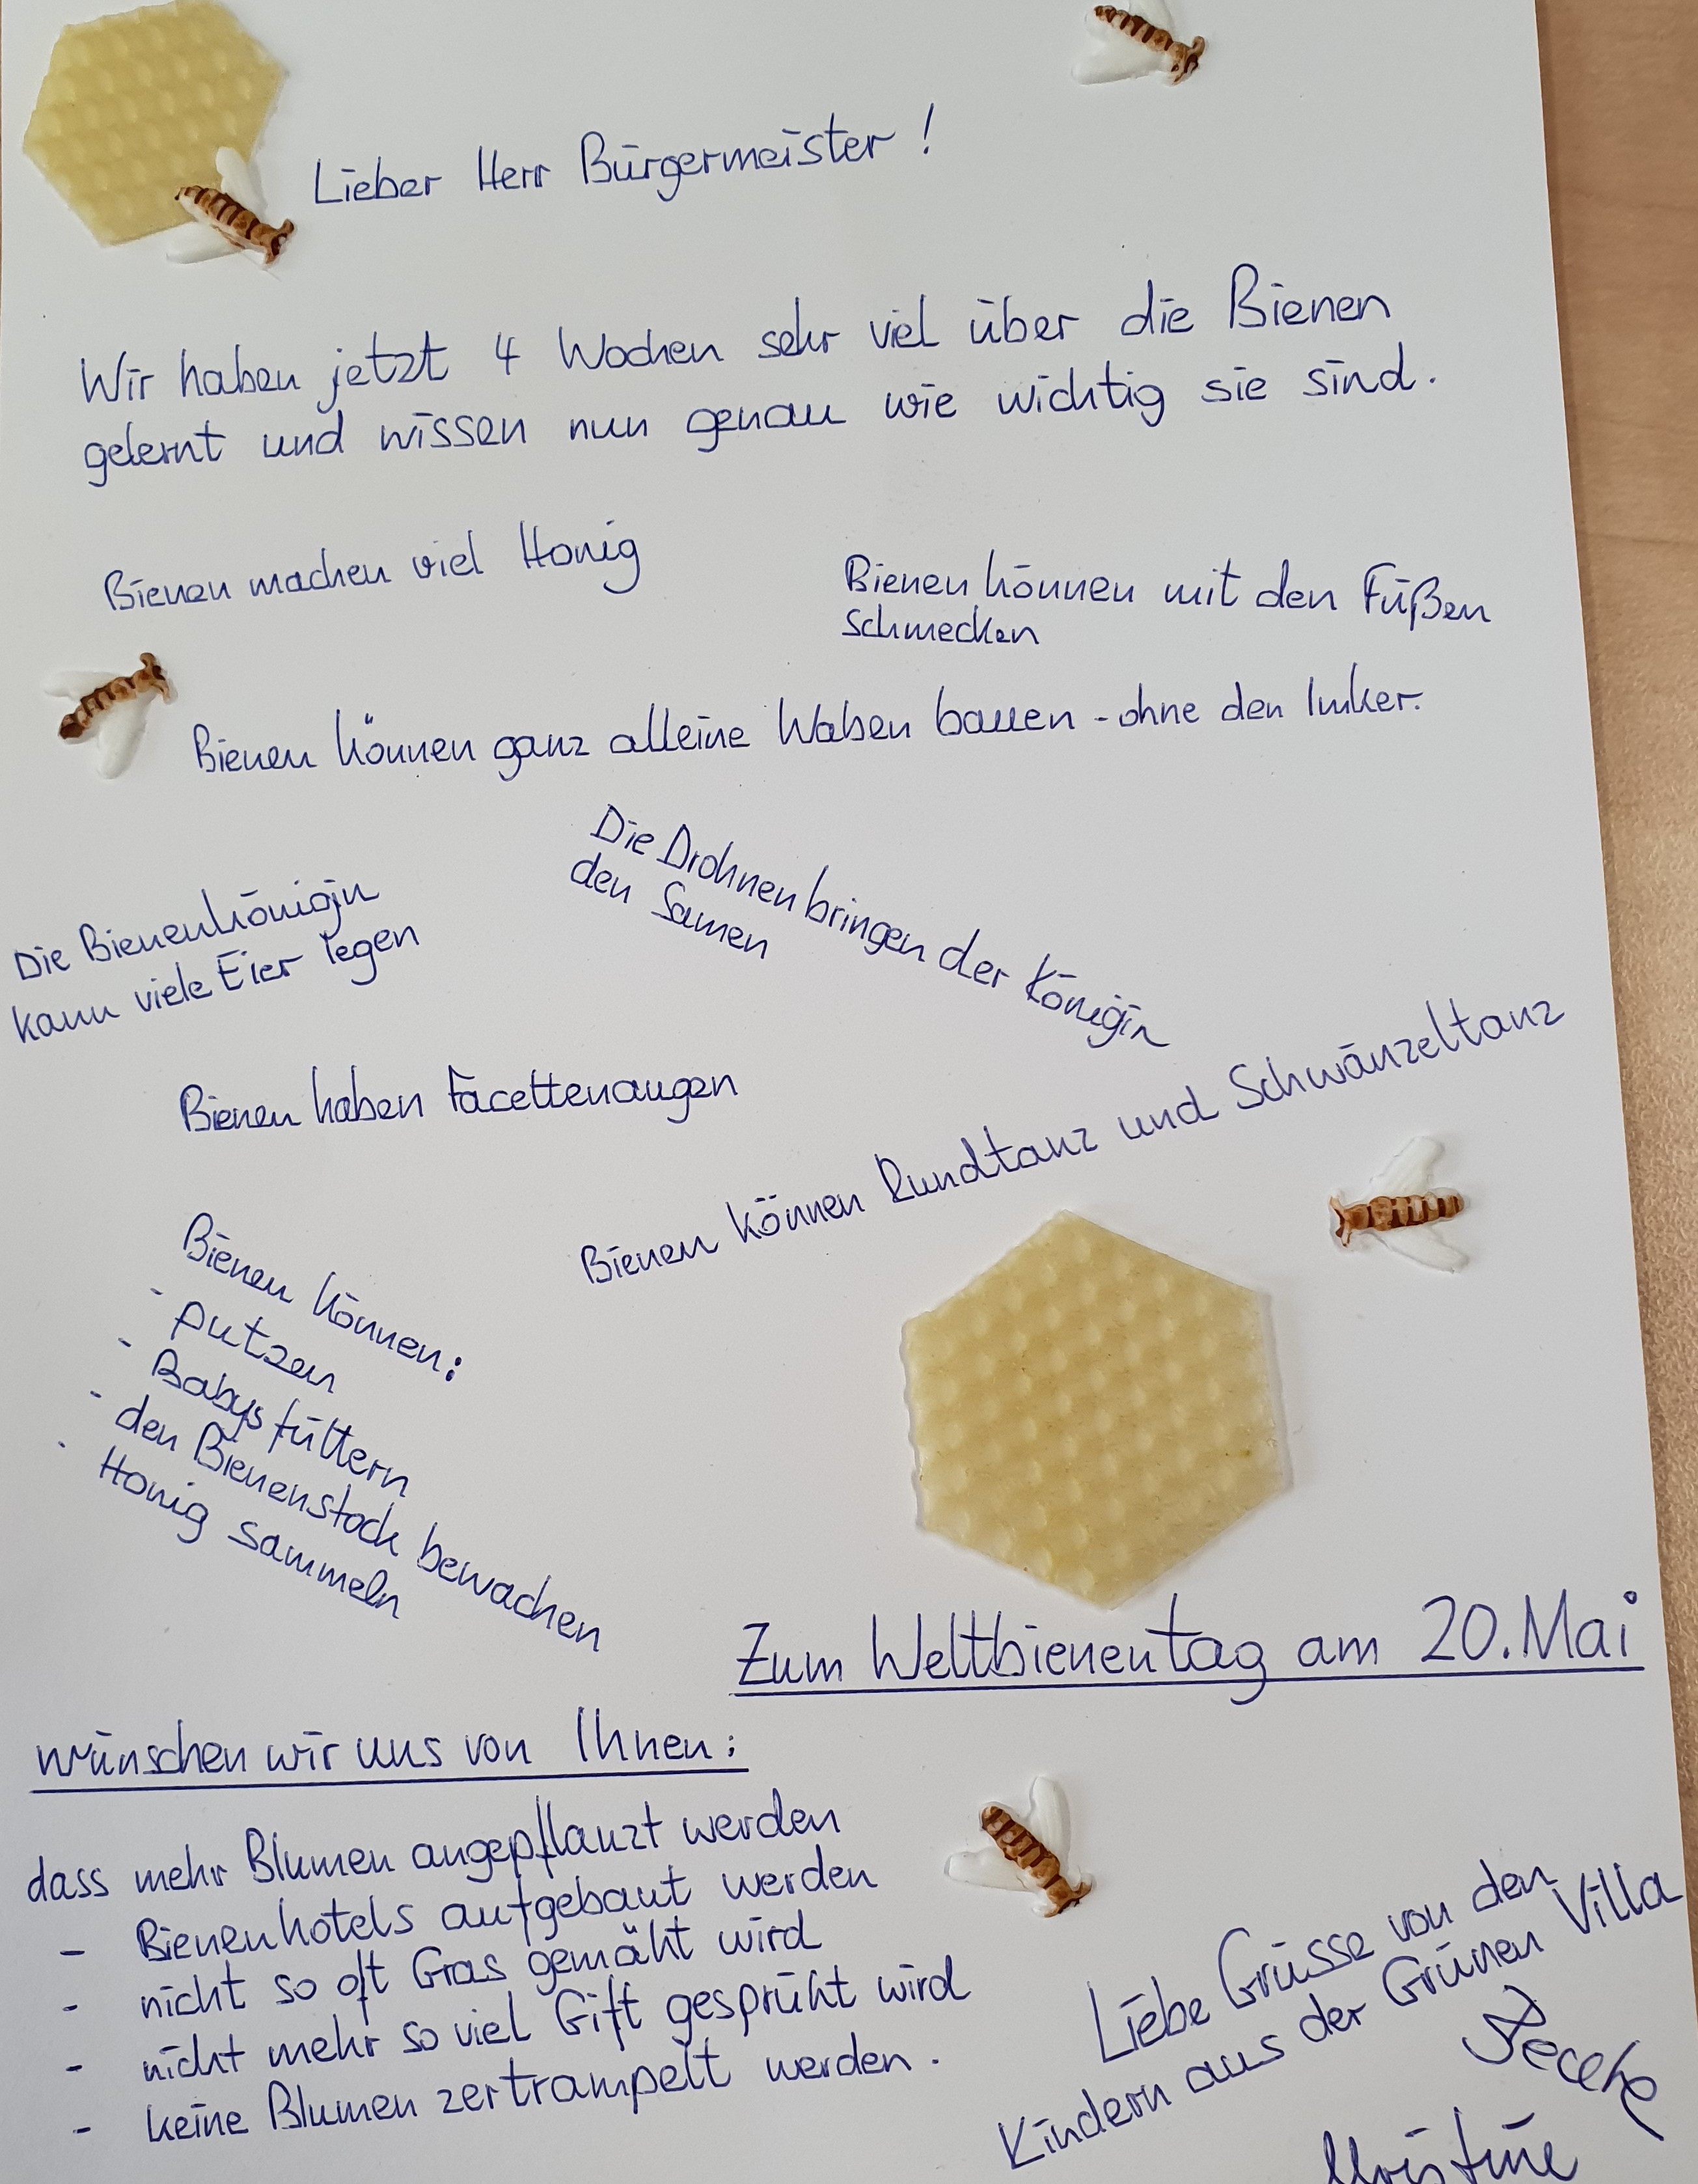 Lieber Herr Bürgermeister!
Wir haben jetzt 4 Wochen sehr viel über die Bienen
gelernt und wissen nun genau wie wichtig sie sind.
Bienen machen viel Honig
Bienen können mit den Füßen
schmecken
Bienen können ganz alleine Waben bauen - ohne den Imker.
Die Drohnen bringen der Königin
den Samen
Die Bienenkönigin
kann viele Eier legen
Bienen haben Facettenaugen
Bienen können Rundtanz und Schwänzeltanz
Bienen können:
- putzen
- Babys füttern
- den Bienenstock bewachen
- Honig sammeln
Zum Weltbienentag am 20. Mai
wünschen wir uns von Ihnen:
dass mehr Blumen angepflanzt werden
- Bienenhotels aufgebaut werden
- nicht so oft Gras gemäht wird
- nicht mehr so viel Gift gesprüht wird
- keine Blumen zertrampelt werden.
Liebe Grüsse von den
Kindern aus der Grünen Villa
Christine